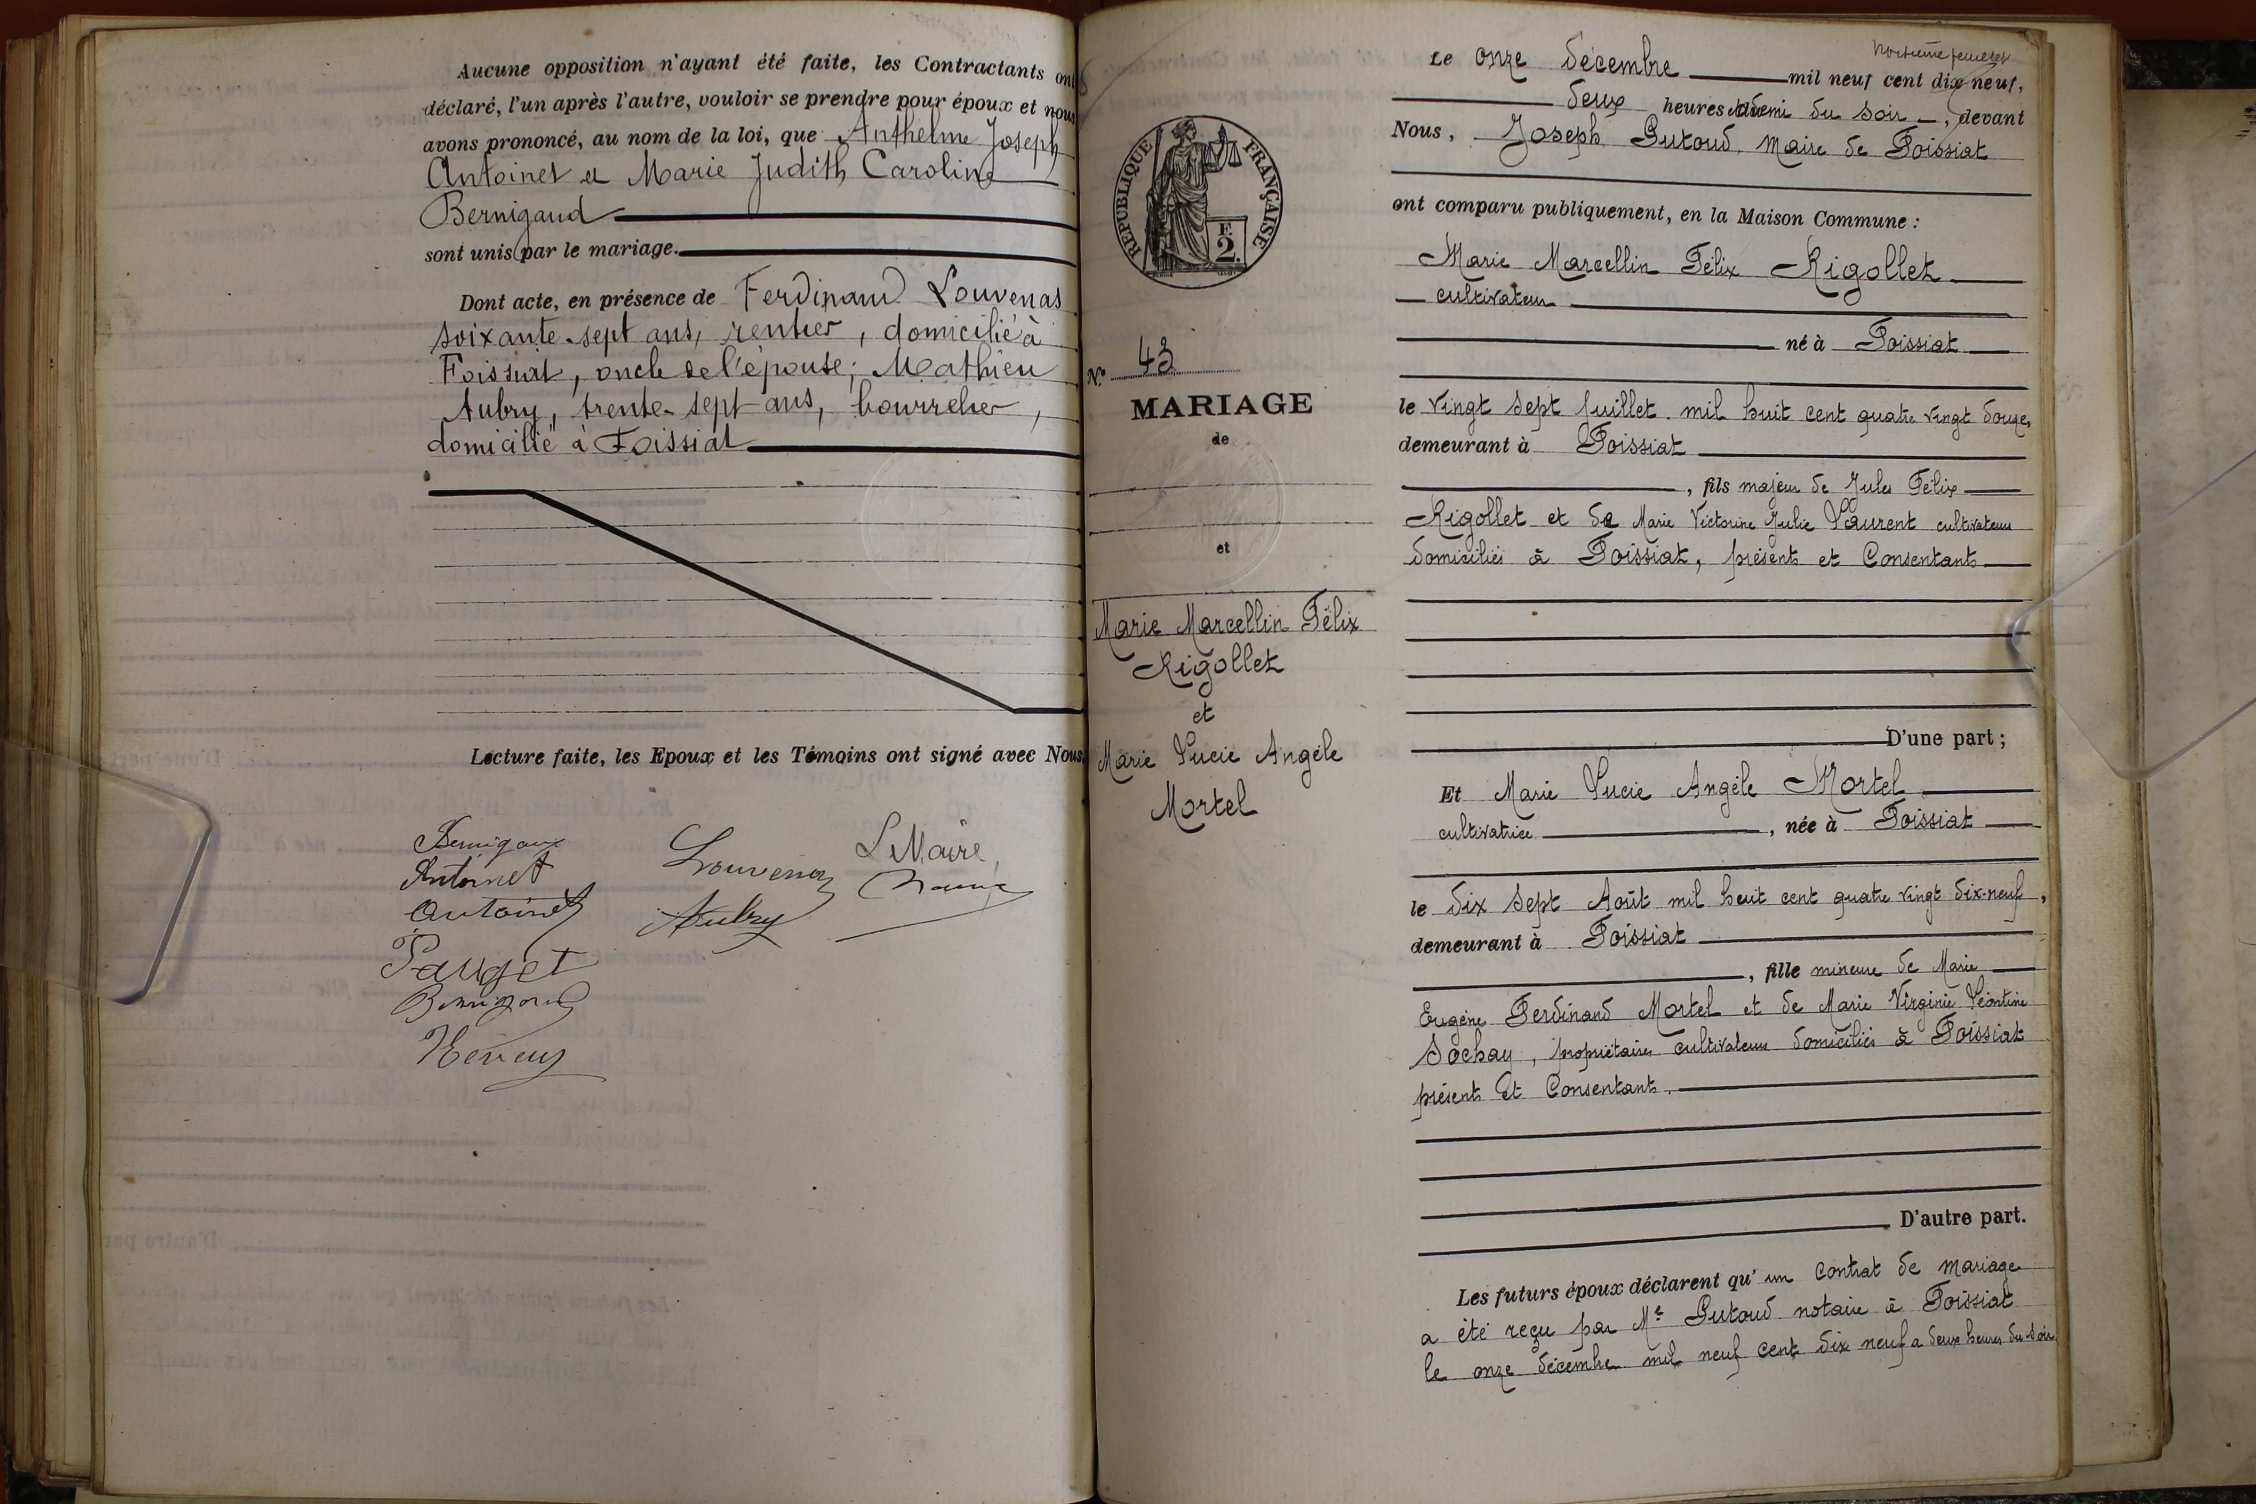 Aucune opposition n'ayant été faite, les Contractants ont
déclaré, l'un après l'autre, vouloir se prendre pour époux et nous
avons prononcé, au nom de la loi, que Anthelme Joseph
Antoinet et Marie Judith Caroline
Bernigaud
sont unis par le mariage.
Dont acte, en présence de Ferdinand Louvenas
soixante-sept ans, rentier, domicilié à
Foissiat, oncle de l'épouse; Mathieu
Aubry, trente-sept ans, bourrelier,
domicilié à Foissiat
Lecture faite, les Epoux et les Témoins ont signé avec Nous
Bernigaud
Antoinet
Antoinet
Pauget
Bernigaud
Louvenas
Aubry
Le Maire,
REPUBLIQUE FRANÇAISE
F.
2.
N.º 43
MARIAGE
de
et
Marie Marcellin Félix
Rigollet
et
Marie Lucie Angèle
Mortel
Le onze décembre mil neuf cent dix-neuf,
deux heures et demi du soir, devant
Nous, Joseph Putoud, Maire de Foissiat
ont comparu publiquement, en la Maison Commune :
Marie Marcellin Félix Rigollet
cultivateur
né à Foissiat
le vingt sept Juillet mil huit cent quatre vingt douze,
demeurant à Foissiat
, fils majeur de Jules Félix
Rigollet et de Marie Victorine Julie Laurent cultivateurs
domiciliés à Foissiat, présents et Consentants
D'une part ;
Et Marie Lucie Angèle Mortel
cultivatrice , née à Foissiat
le dix sept Août mil huit cent quatre vingt dix-neuf,
demeurant à Foissiat
, fille mineure de Marie
Eugène Ferdinand Mortel et de Marie Virginie Léontine
Sochay, propriétaires cultivateurs domiciliés à Foissiat
présents et Consentants.
D'autre part.
Les futurs époux déclarent qu'un contrat de mariage
a été reçu par Me Putoud notaire à Foissiat
le onze décembre mil neuf cent dix neuf a deux heures du soir